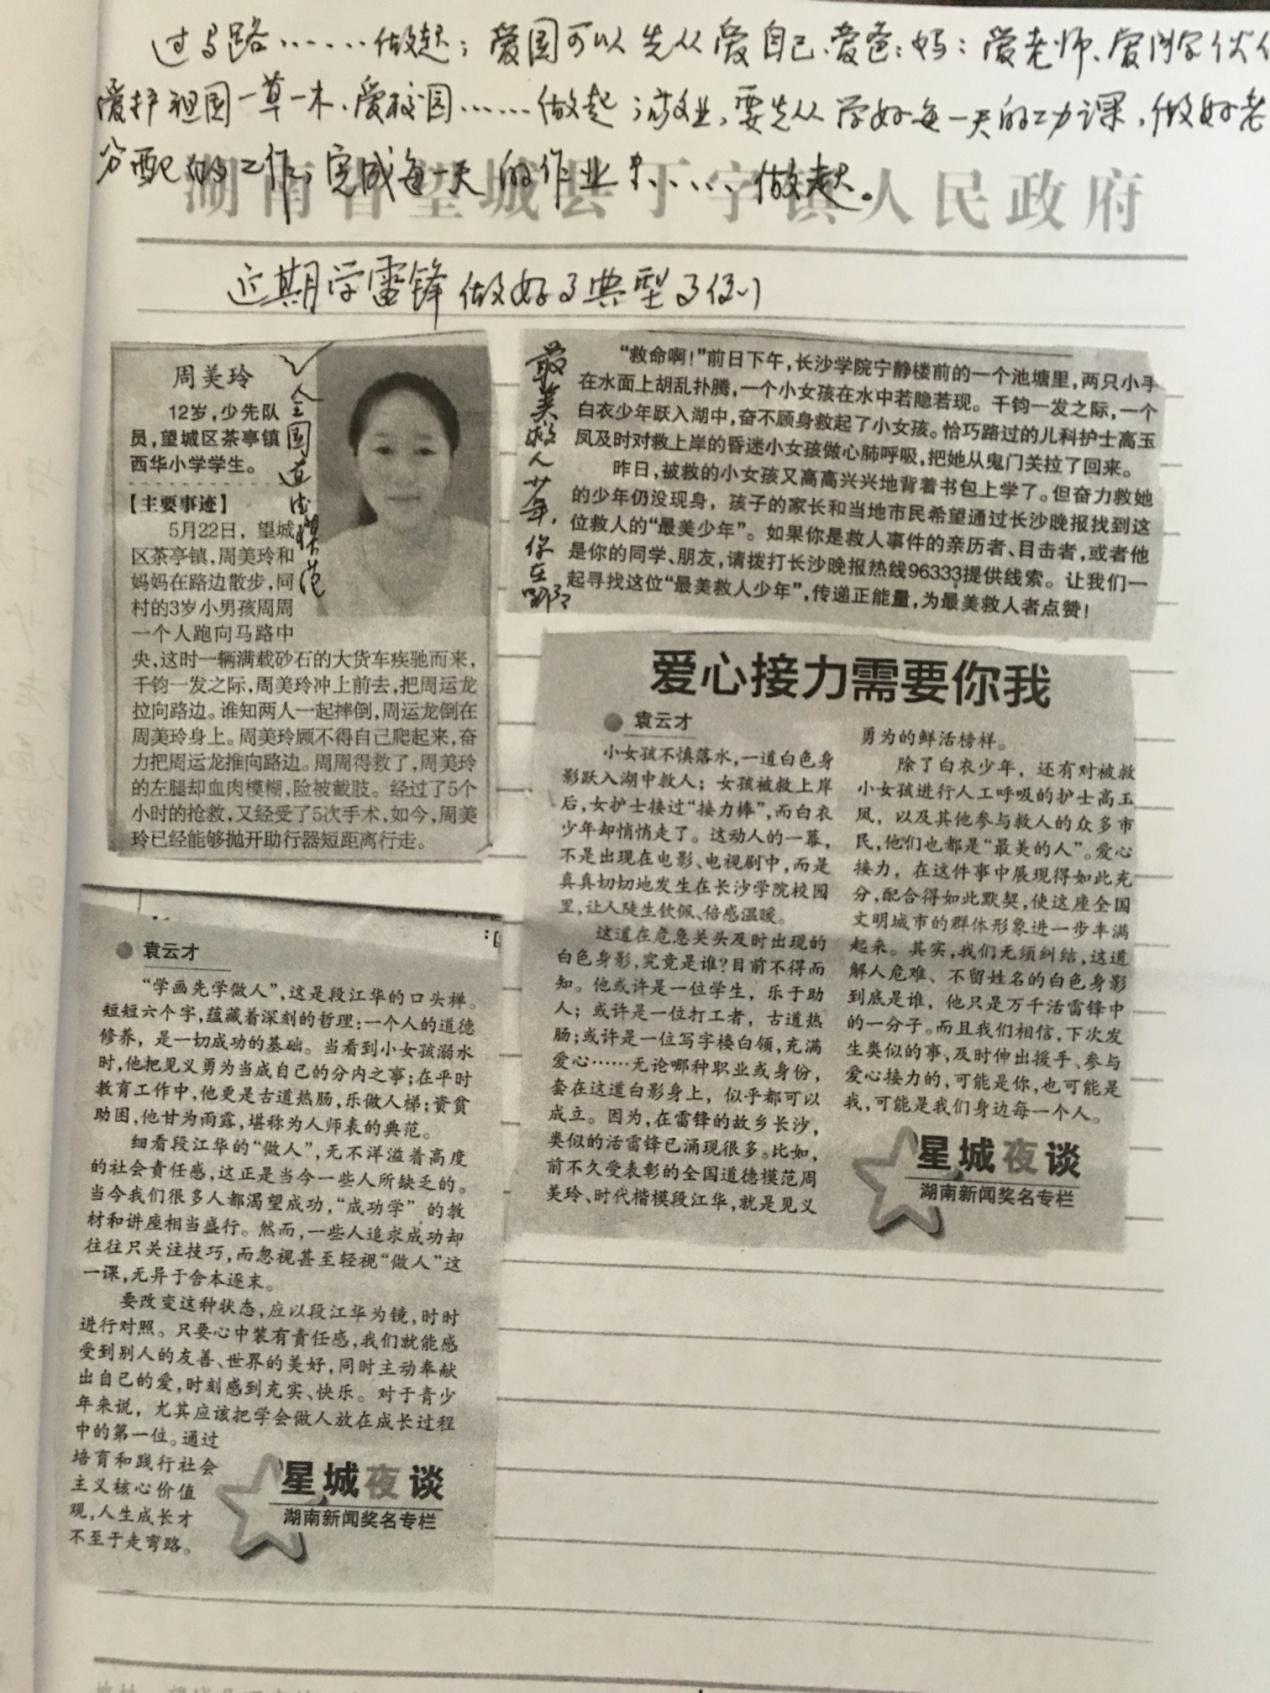 过马路……做起；爱国可以先从爱自己、爱爸、妈；爱老师、爱同学伙
爱护祖国一草一木、爱校园……做起；敬业，要先从学好每一天的功课，做好老
分配的工作，完成每一天的作业来……做起。
湖南省望城县丁字镇人民政府
近期学雷锋做好事典型事例
周美玲
12岁，少先队
员，望城区茶亭镇
西华小学学生。
【主要事迹】
5月22日，望城
区茶亭镇，周美玲和
妈妈在路边散步，同
村的3岁小男孩周周
一个人跑向马路中
央，这时一辆满载砂石的大货车疾驰而来，
千钧一发之际，周美玲冲上前去，把周运龙
拉向路边。谁知两人一起摔倒，周运龙倒在
周美玲身上。周美玲顾不得自己爬起来，奋
力把周运龙推向路边。周周得救了，周美玲
的左腿却血肉模糊，险被截肢。经过了5个
小时的抢救，又经受了5次手术，如今，周美
玲已经能够抛开助行器短距离行走。
全国道德模范
最美救人少年，你在哪
“救命啊！”前日下午，长沙学院宁静楼前的一个池塘里，两只小手
在水面上胡乱扑腾，一个小女孩在水中若隐若现。千钧一发之际，一个
白衣少年跃入湖中，奋不顾身救起了小女孩。恰巧路过的儿科护士高玉
凤及时对救上岸的昏迷小女孩做心肺呼吸，把她从鬼门关拉了回来。
昨日，被救的小女孩又高高兴兴地背着书包上学了。但奋力救她
的少年仍没现身，孩子的家长和当地市民希望通过长沙晚报找到这
位救人的“最美少年”。如果你是救人事件的亲历者、目击者，或者他
是你的同学、朋友，请拨打长沙晚报热线96333提供线索。让我们一
起寻找这位“最美救人少年”，传递正能量，为最美救人者点赞！
爱心接力需要你我
●袁云才
小女孩不慎落水，一道白色身
影跃入湖中救人；女孩被救上岸
后，女护士接过“接力棒”，而白衣
少年却悄悄走了。这动人的一幕，
不是出现在电影、电视剧中，而是
真真切切地发生在长沙学院校园
里，让人陡生钦佩、倍感温暖。
这道在危急关头及时出现的
白色身影，究竟是谁？目前不得而
知。他或许是一位学生，乐于助
人；或许是一位打工者，古道热
肠；或许是一位写字楼白领，充满
爱心……无论哪种职业或身份，
套在这道白影身上，似乎都可以
成立。因为，在雷锋的故乡长沙，
类似的活雷锋已涌现很多。比如，
前不久受表彰的全国道德模范周
美玲、时代楷模段江华，就是见义
勇为的鲜活榜样。
除了白衣少年，还有对被救
小女孩进行人工呼吸的护士高玉
凤，以及其他参与救人的众多市
民，他们也都是“最美的人”。爱心
接力，在这件事中展现得如此充
分，配合得如此默契，使这座全国
文明城市的群体形象进一步丰满
起来。其实，我们无须纠结，这道
解人危难、不留姓名的白色身影
到底是谁，他只是万千活雷锋中
的一分子。而且我们相信，下次发
生类似的事，及时伸出援手、参与
爱心接力的，可能是你，也可能是
我，可能是我们身边每一个人。
星城夜谈
湖南新闻奖名专栏
●袁云才
“学画先学做人”，这是段江华的口头禅。
短短六个字，蕴藏着深刻的哲理：一个人的道德
修养，是一切成功的基础。当看到小女孩溺水
时，他把见义勇为当成自己的分内之事；在平时
教育工作中，他更是古道热肠，乐做人梯；资贫
助困，他甘为雨露，堪称为人师表的典范。
细看段江华的“做人”，无不洋溢着高度
的社会责任感，这正是当今一些人所缺乏的。
当今我们很多人都渴望成功，“成功学”的教
材和讲座相当盛行。然而，一些人追求成功却
往往只关注技巧，而忽视甚至轻视“做人”这
一课，无异于舍本逐末。
要改变这种状态，应以段江华为镜，时时
进行对照。只要心中装有责任感，我们就能感
受到别人的友善、世界的美好，同时主动奉献
出自己的爱，时刻感到充实、快乐。对于青少
年来说，尤其应该把学会做人放在成长过程
中的第一位。通过
培育和践行社会
主义核心价值
观，人生成长才
不至于走弯路。
星城夜谈
湖南新闻奖名专栏